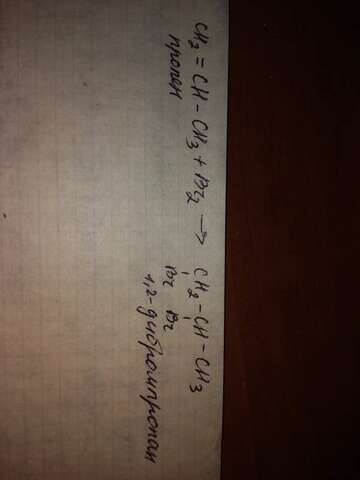 CH₂ = CH - CH₃ + Br₂ → CH₂ - CH - CH₃
Br Br
пропен 1,2-дибромпропан